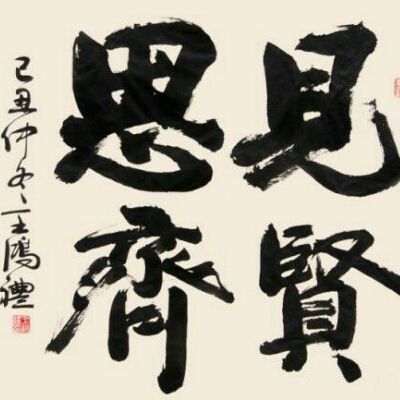 見賢
思齊
己丑仲冬王鴻禮